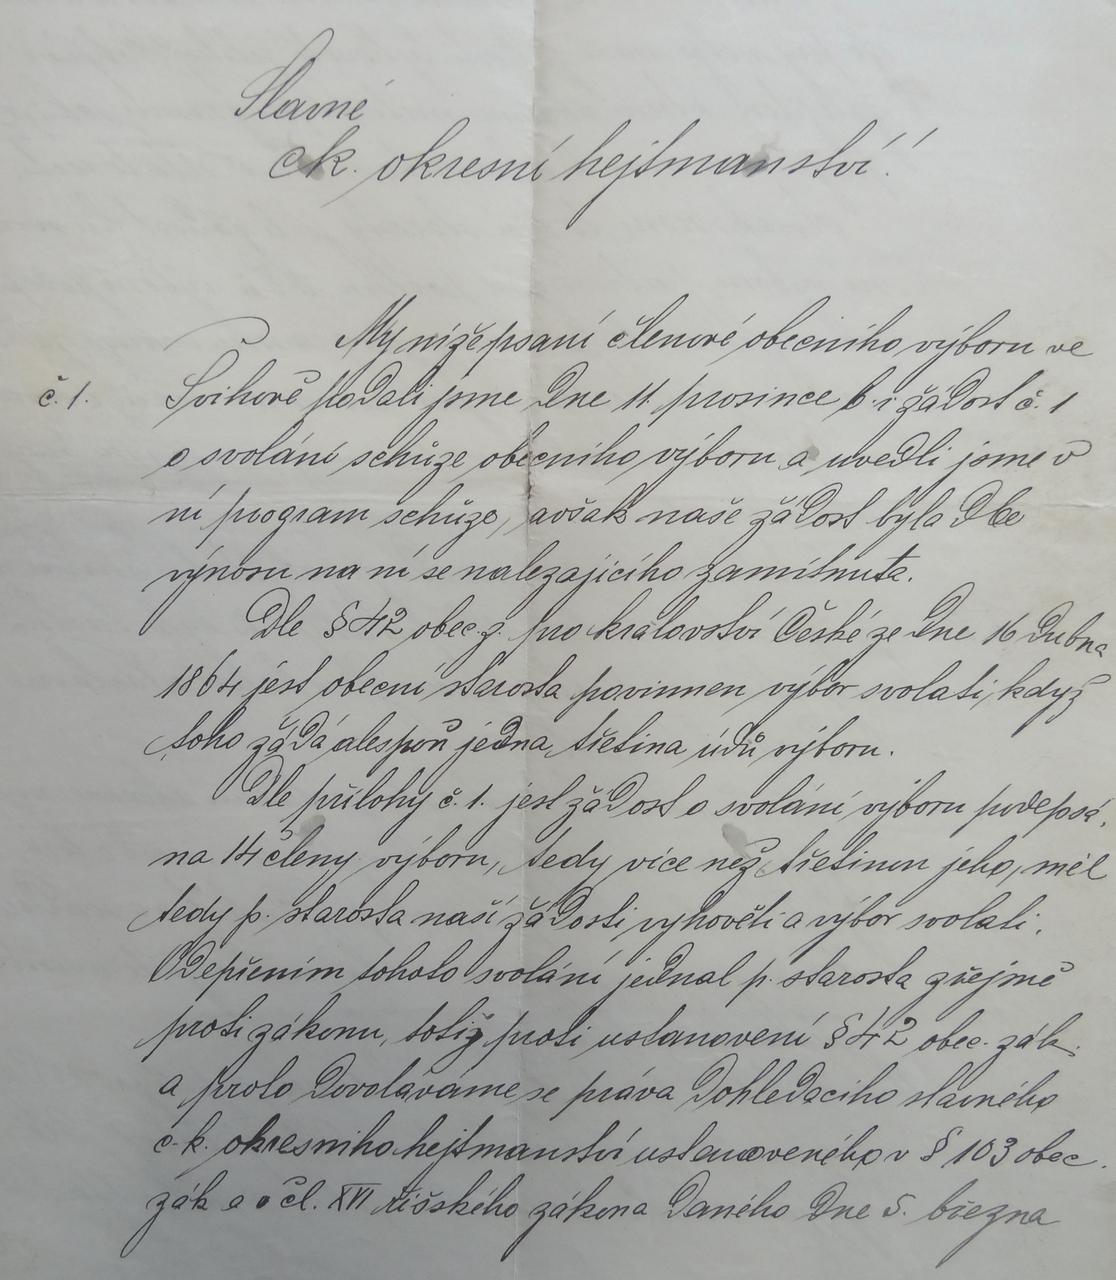 Slavné
c.k. okresní hejtmanství!
My níže psaní členové obecního výboru ve
č. 1. Švihově podali jsme dne 11. prosince b. r. žádost č. 1
o svolání schůze obecního výboru a uvedli jsme v
ní program schůze, avšak naše žádost byla dle
výnosu na ní se nalezajícího zamítnuta.
Dle § 42 obec. z. pro království České ze dne 16 dubna
1864 jest obecní starosta povinnen výbor svolati, když
toho žádá alespoň jedna třetina údů výboru.
Dle přílohy č. 1. jest žádost o svolání výboru podepsá,
na 14 členy výboru, tedy více než třetinou jeho, měl
tedy p. starosta naší žádosti vyhověti a výbor svolati.
Odepřením tohoto svolání jednal p. starosta zřejmě
proti zákonu, totiž proti ustanovení § 42 obec. zák.
a proto dovoláváme se práva dohledacího slavného
c. k. okresního hejtmanství ustanoveného v § 103 obec.
zák a čl. XVI říšského zákona daného dne 5. března